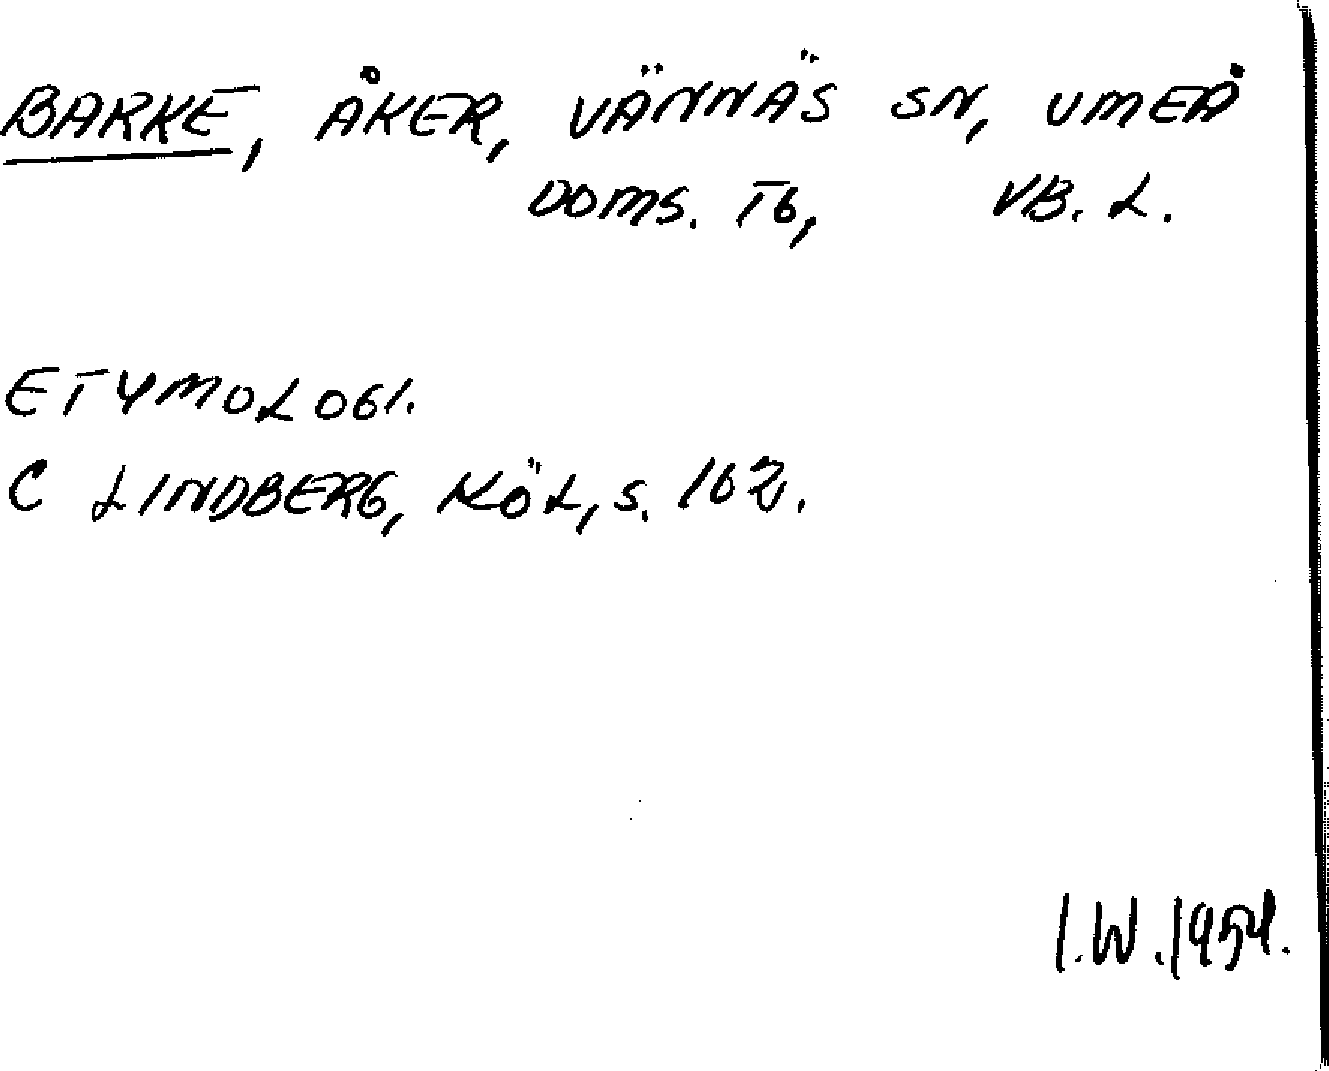 BARKE, ÅKER, VÄNNÄS SN, UMEÅ
DOMS. TG, VB. L.
ETYMOLOGI.
C LINDBERG, KÖL, S. 162.
I.W.1954.